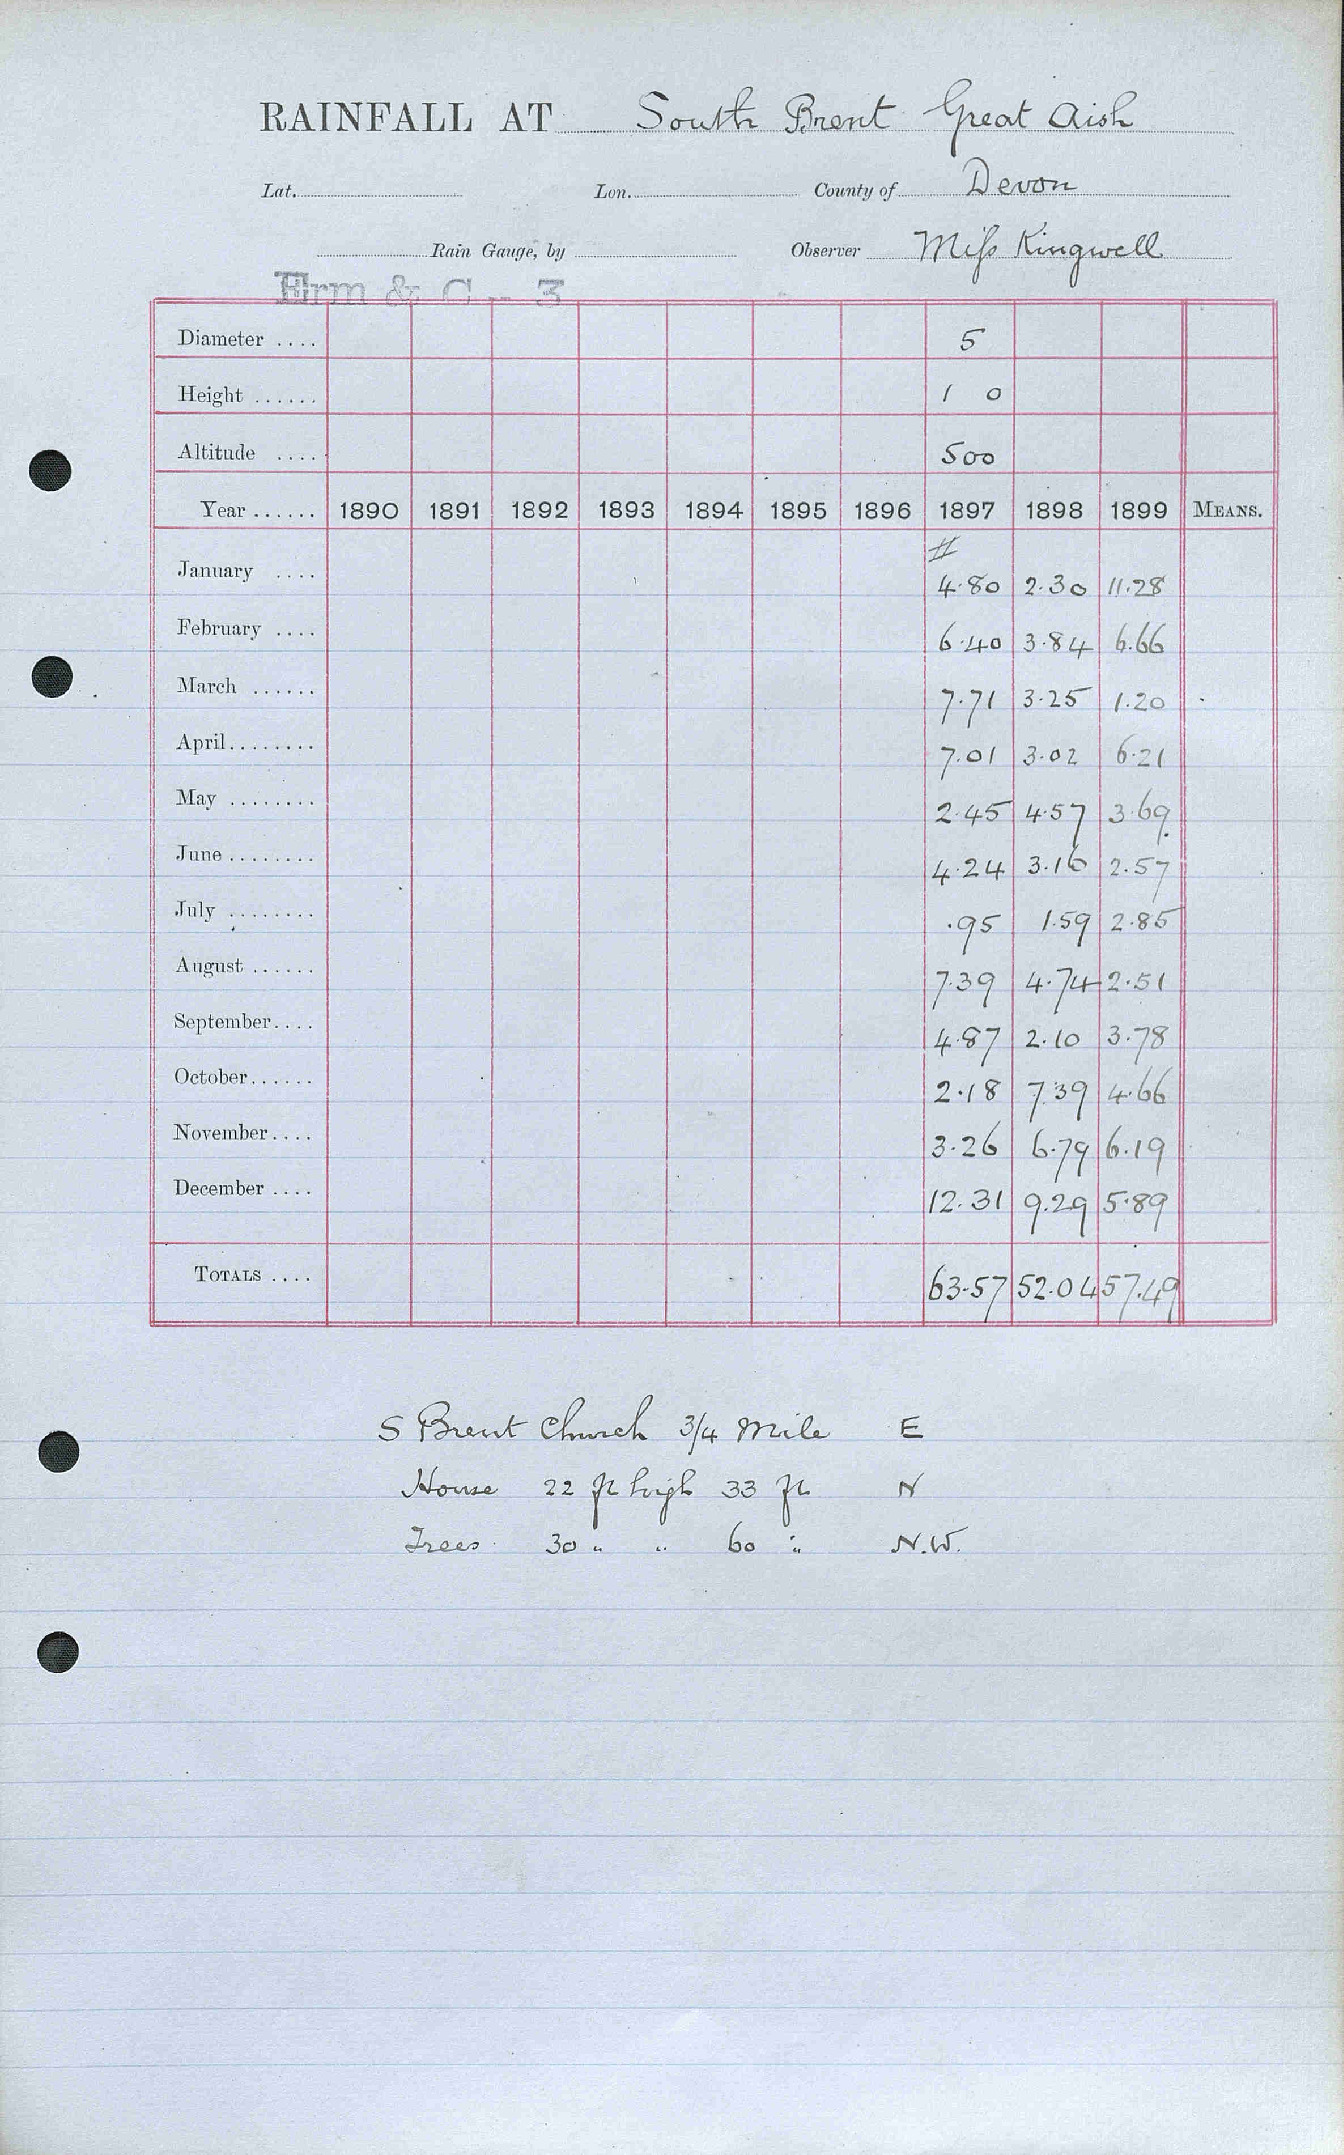 RAINFALL AT South Brent Great Aish
Lat. Lon. County of Devon
Rain Gauge, by Observer Miss Kingwell
Erm & C - 3
Diameter .... 5
Height ...... 1 0
Altitude .... 500
Year ...... 1890 1891 1892 1893 1894 1895 1896 1897 1898 1899 MEANS.
#
January .... 4.80 2.30 11.28
February .... 6.40 3.84 6.66
March ...... 7.71 3.25 1.20
April ........ 7.01 3.02 6.21
May ........ 2.45 4.57 3.69
June ........ 4.24 3.16 2.57
July ........ .95 1.59 2.85
August ...... 7.39 4.74 2.51
September .... 4.87 2.10 3.78
October ...... 2.18 7.39 4.66
November .... 3.26 6.79 6.19
December .... 12.31 9.29 5.89
TOTALS .... 63.57 52.04 57.49
S Brent Church 3/4 Mile E
House 22 ft high 33 ft N
Trees 30 " " 60 " N.W.